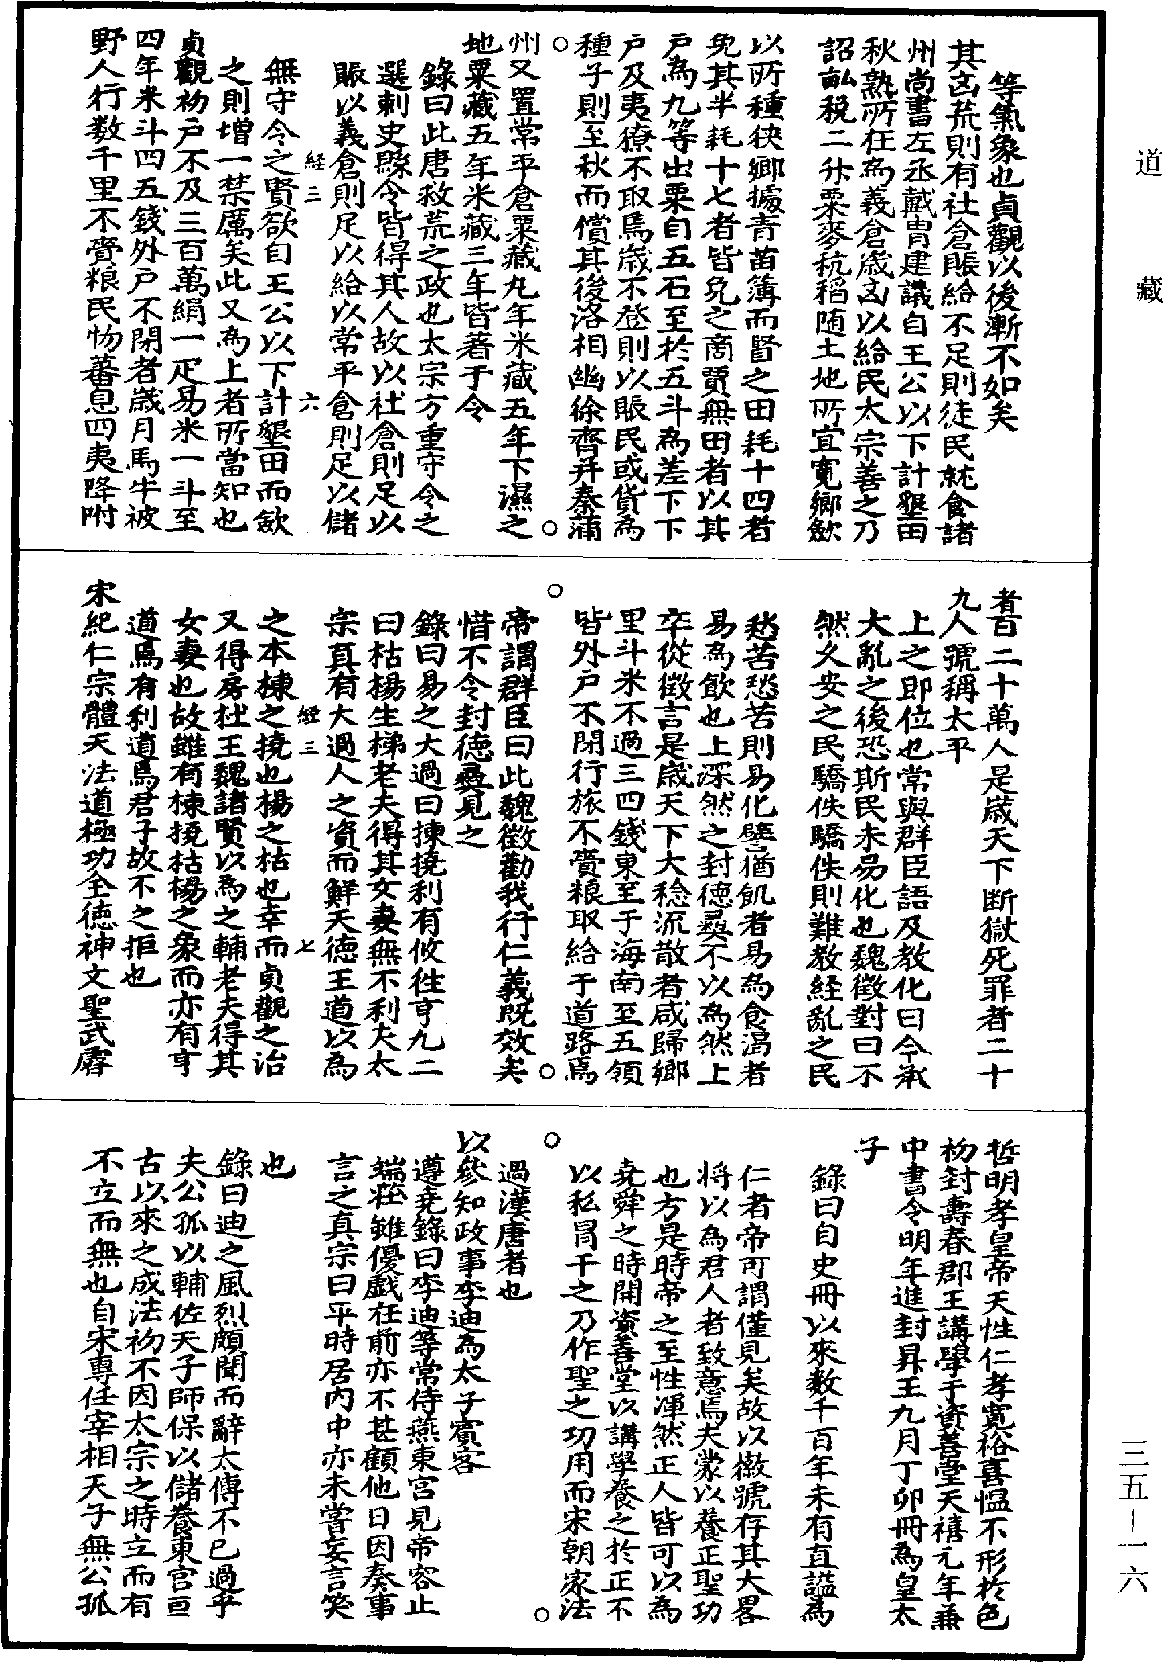 道藏
等氣象也貞觀以後漸不如矣
其凶荒則有社倉賑給不足則徒民就食諸
州尚書左丞戴冑建議自王公以下計墾田
秋熟所在為義倉歲凶以給民太宗善之乃
詔畝稅二升粟麥秔稻隨土地所宜寬鄉斂
以所種狹鄉據青苗簿而督之田耗十四者
免其半耗十七者皆免之商賈無田者以其
戶為九等出粟自五石至於五斗為差下下
戶及夷獠不取焉歲不登則以賑民或貸為
種子則至秋而償其後洛相幽徐齊并秦蒲
州又置常平倉粟藏九年米藏五年下濕之
地粟藏五年米藏三年皆著于令
錄曰此唐救荒之政也太宗方重守令之
選刺史縣令皆得其人故以社倉則足以
賑以義倉則足以給以常平倉則足以儲
経三
六
無守令之賢欲自王公以下計墾田而斂
之則增一禁厲矣此又為上者所當知也
貞觀初戶不及三百萬絹一疋易米一斗至
四年米斗四五錢外戶不閉者歲月馬牛被
野人行数千里不齎粮民物蕃息四夷降附
者百二十萬人是歲天下断獄死罪者二十
九人號稱太平
上之即位也常與群臣語及教化曰今承
大亂之後恐斯民未易化也魏徵對曰不
然久安之民驕佚驕佚則難教経亂之民
愁苦愁苦則易化譬猶飢者易為食渴者
易為飲也上深然之封德彝不以為然上
卒從徵言是歲天下大稔流散者咸歸鄉
里斗米不過三四錢東至于海南至五領
皆外戶不閉行旅不齎粮取給于道路焉
帝謂群臣曰此魏徵勸我行仁義既效矣
惜不令封德彝見之
錄曰易之大過曰揀撓利有攸往亨九二
曰枯楊生梯老夫得其女妻無不利夫太
宗真有大過人之資而鮮天德王道以為
経三
七
之本棟之撓也楊之枯也幸而貞觀之治
又得房杜王魏諸賢以為之輔老夫得其
女妻也故雖有棟撓枯楊之象而亦有亨
道焉有利道焉君子故不之拒也
宋紀仁宗體天法道極功全德神文聖武睿
哲明孝皇帝天性仁孝寬裕喜慍不形於色
初封壽春郡王講學于資善堂天禧元年兼
中書令明年進封昇王九月丁卯冊為皇太
子
錄曰自史冊以來数千百年未有直謚為
仁者帝可謂僅見矣故以徽號存其大畧
將以為君人者致意焉夫蒙以養正聖功
也方是時帝之至性渾然正人皆可以為
堯舜之時開資善堂以講學養之於正不
以私冐干之乃作聖之功用而宋朝家法
過漢唐者也
以參知政事李迪為太子賓客
遵堯錄曰李迪等常侍燕東宮見帝容止
端莊雖優戲在前亦不甚顧他日因奏事
言之真宗曰平時居內中亦未嘗妄言笑
也
錄曰迪之風烈頗聞而辭太傅不已過乎
夫公孤以輔佐天子師保以儲養東宮亘
古以來之成法初不因太宗之時立而有
不立而無也自宋專任宰相天子無公孤
三五－一六